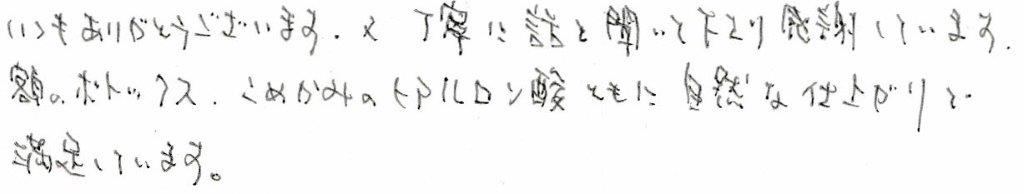 いつもありがとうございます。又 丁寧に話を聞いて下さり感謝しています。
額のボトックス、こめかみのヒアルロン酸ともに自然な仕上がりで
満足しています。